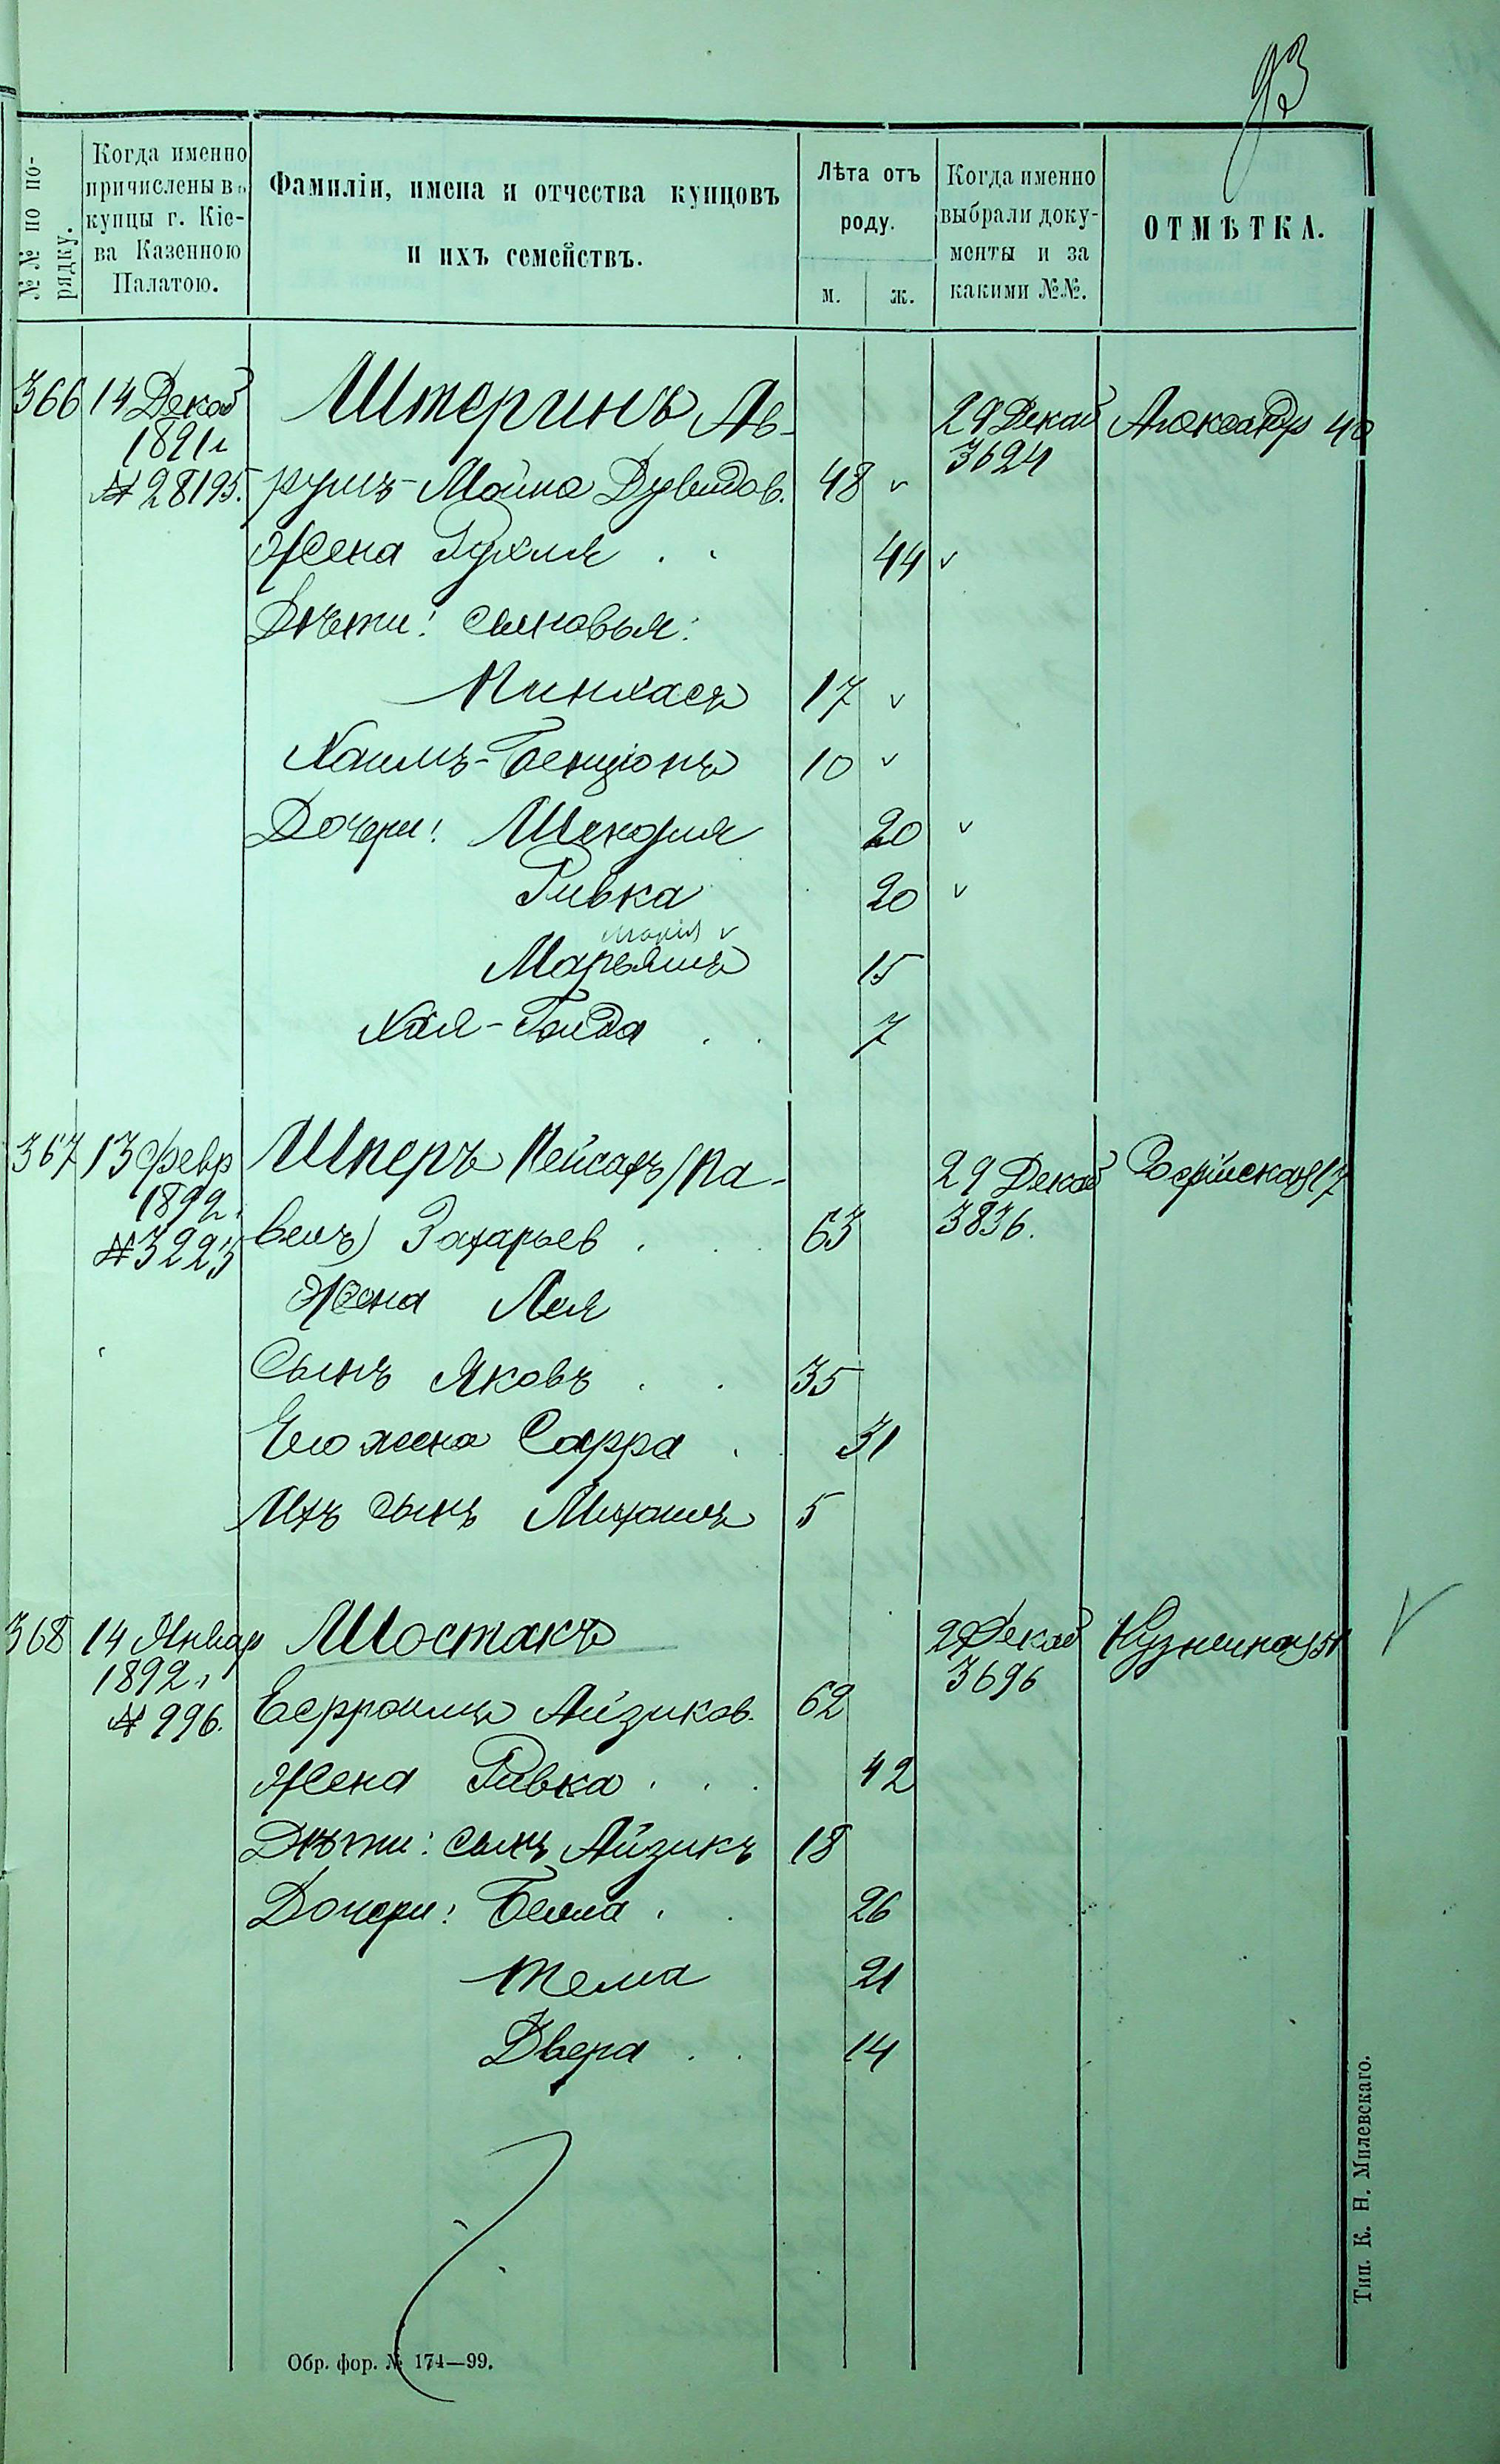 93
№№ по по-
рядку.
Когда именно
причислены въ
купцы г. Кіе-
ва Казенною
Палатою.
Фамиліи, имена и отчества купцовъ
и ихъ семействъ.
Лѣта отъ
роду.
м. ж.
Когда именно
выбрали доку-
менты и за
какими №№.
ОТМѢТКА.
366 14 Декаб Штеринъ Ав- 29 Декаб Александр 40
1891 г 3624
№ 28195. румъ-Мойше Дувидов. 48 v
Жена Рухля . . 44 v
Дѣти: сыновья:
Пинхасъ 17 v
Хаимъ-Бенціонъ 10 v
Дочери: Шендля 20 v
Ривка 20 v
Марія v
Марьямъ 15
Хая-Гольда . . 7
367 13 Февр Шперъ Пейсахъ (Па- 29 Декаб Софійская 17
1892. 3836.
№ 3223 велъ) Захарьев . . . 63
Жена Лея
Сынъ Яковъ . . 35
Его жена Сарра . 31
Ихъ сынъ Михаилъ 5
368 14 Январ Шостакъ 29 Декаб Кузнечная 51 v
1892 г 3696
№ 996. Айзиков. 62
Жена Ривка . . . 42
Дѣти: сынъ Айзикъ 18
Дочери: Бейла . . 26
Тема 21
Двера . . 14
Обр. фор. № 174—99.
Тип. К. Н. Милевскаго.